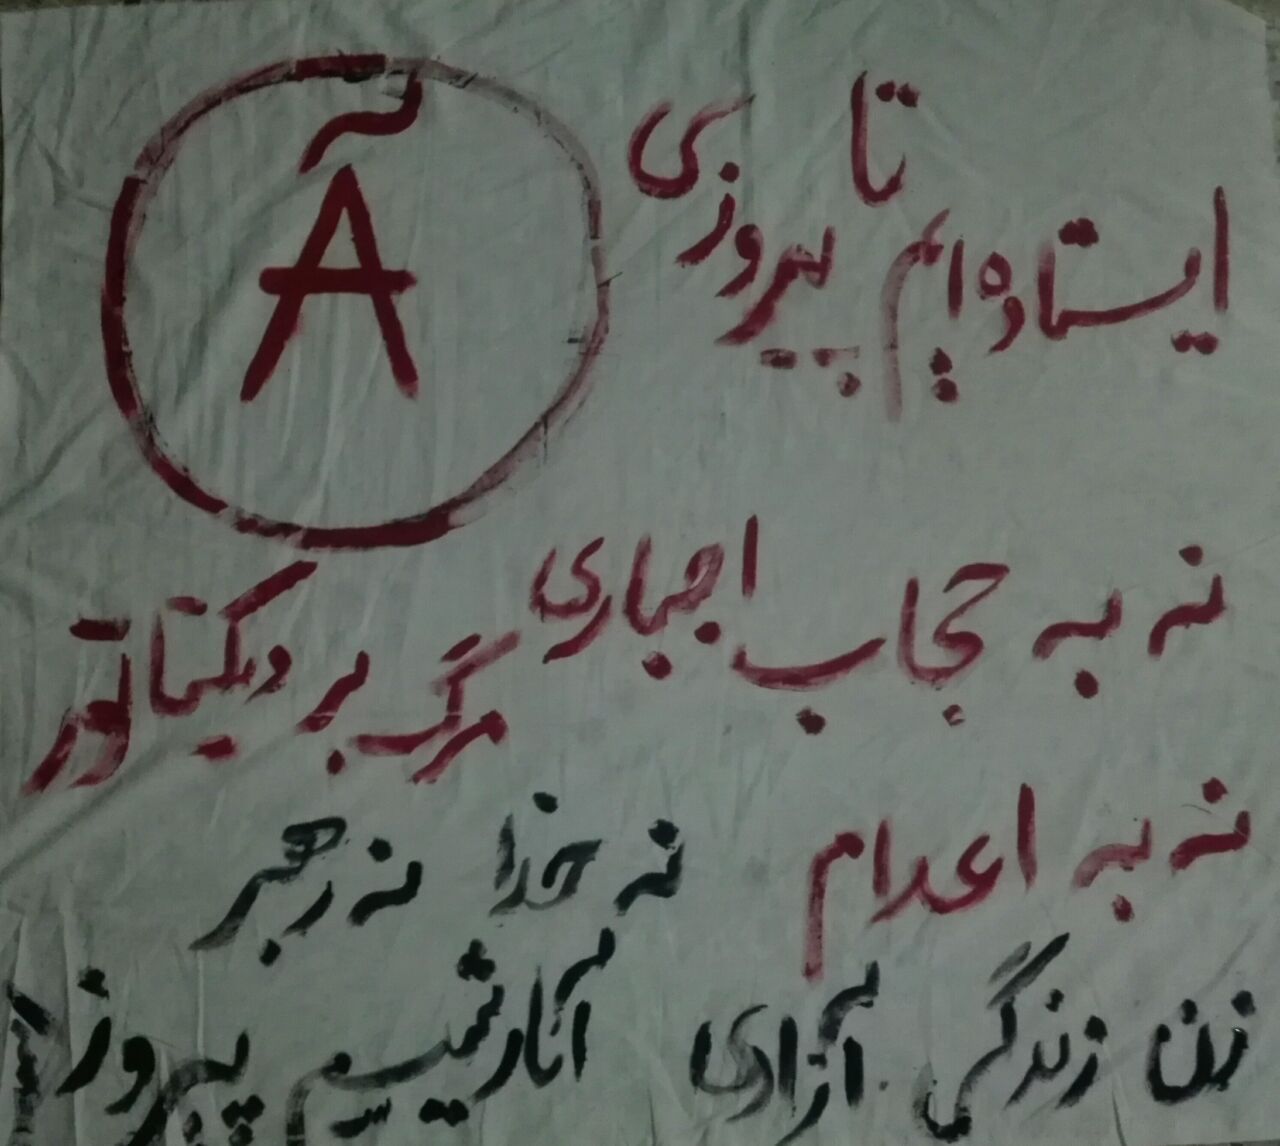 Ã
ایستاده‌ایم تا پیروزی
نه به حجاب اجباری
مرگ بر دیکتاتور
نه به اعدام
نه خدا نه رهبر
زن زندگی آزادی
آنارشیسم پیروز